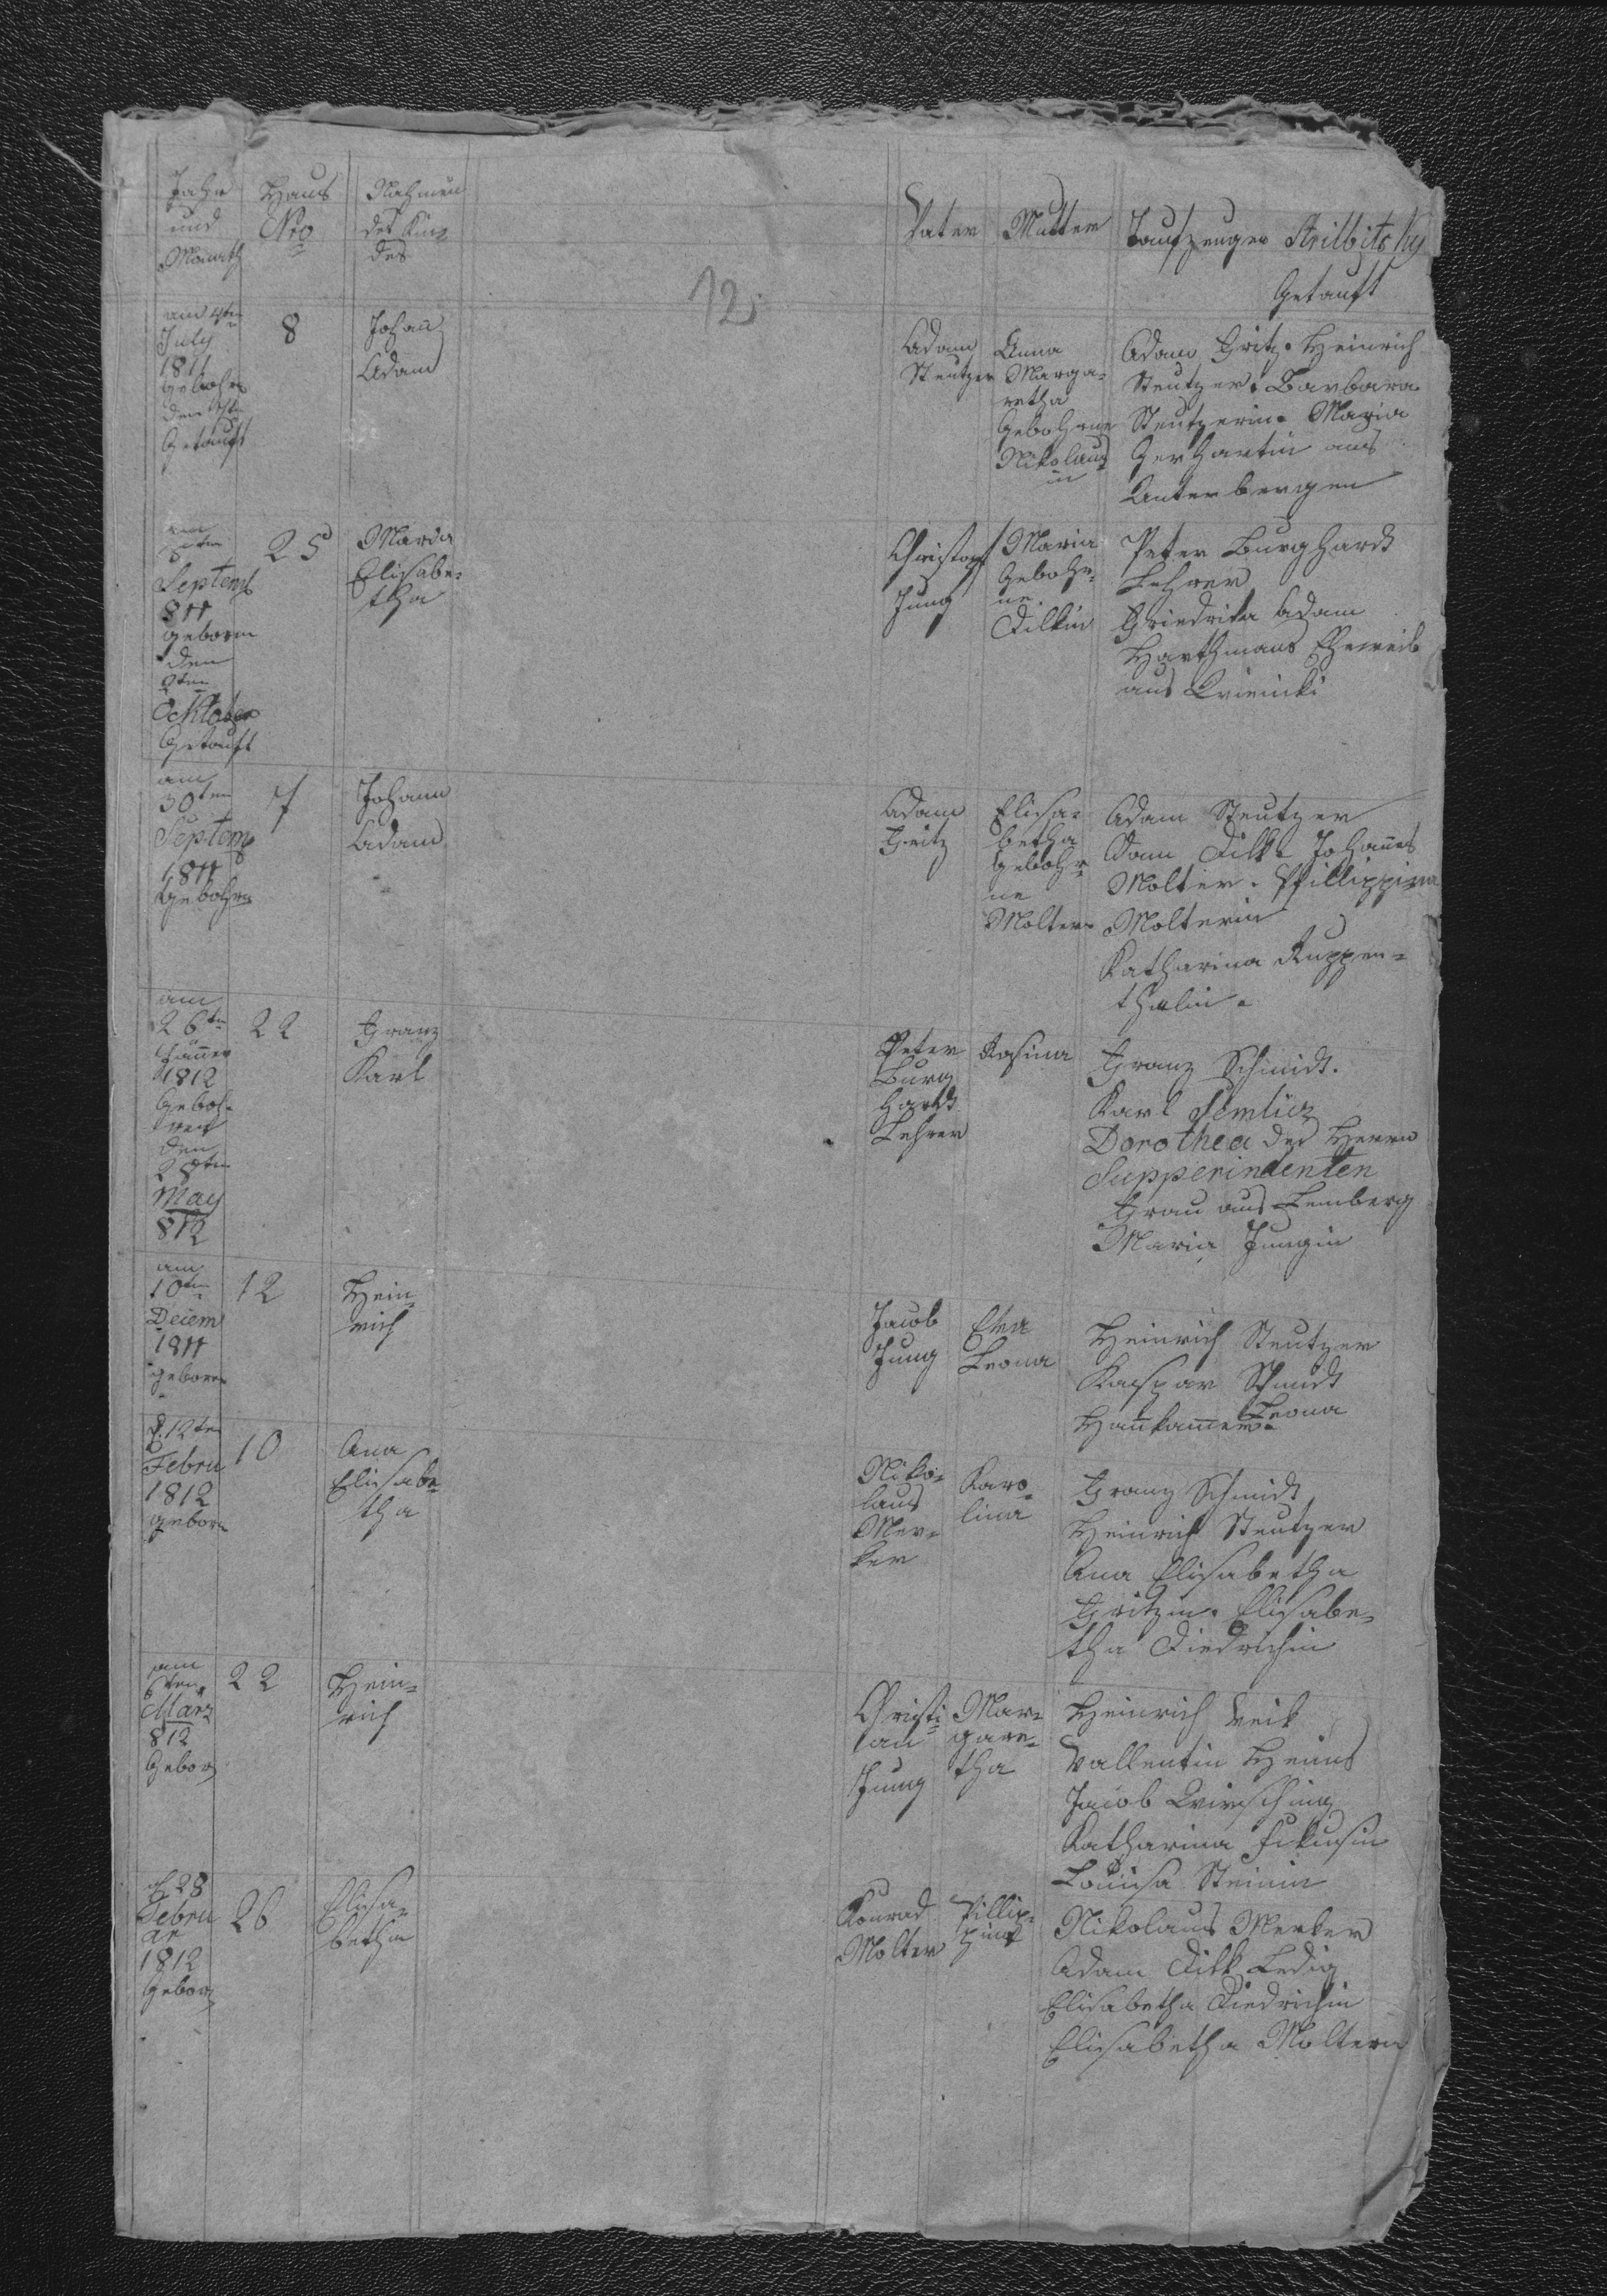 Jahr
und
Monath
Haus
Nro
Nahmen
des Kin=
des
Vater
Mutter
Taufzeugen
Getauft
12.
am 4ten
July
1811
gebohrn
den
Getauft
8
Johan
Adam
Adam
Steutzer
Anna
Marga=
retha
Gebohrne
Nikolaus
in
Adam Fritz. Heinrich
Steutzer. Barbara
Steutzerin. Maria
Gerhartin aus
Unterbergen
am
8ten
Septemb
811
geboren
den
Ocktober
Getauft
25
Maria
Elisabe=
tha
Christoph
Jung
Maria
Gebohr=
ne.
Dilkin
Peter Burghardt
Lehrer
Friedrika Adam
Harthmans Eheweib
aus
am
30ten
Septemb
1811
Gebohrn
7
Johann
Adam
Adam
Fritz
Elisa=
betha
Gebohr=
ne
Molter
Adam Steutzer
Adam Dilk. Johanes
Molter. Phillippina
Molterin
Katharina Ruppen=
thalin.
am
26ten
Jäner
1812
Geboh=
ren
den
28ten
May
812
22
Franz
Karl
Peter
Burg
hardt
Lehrer
Rosina
Franz Schmidt.
Karl
Dorothea des Herrn
Supperindenten
Frau aus Lemberg
Maria Jungin
am
10ten
Deiem
1811
geboren
12
Hein=
rich
Jacob
Jung
Eva
Leona
Heinrich Steutzer
Kaspar Schmidt
Leona
d. 12ten
Febru
1812
geborn
10
Ana
Elisabe=
tha
Niko=
laus
Mer=
ker
Karo=
lina
Franz Schmidt
Heinrich Steutzer
Ana Elisabetha
Fritzin. Elisabe=
tha Diedrichin
am
6ten
Marz
812
Gebor
22
Hein=
rich
Christi=
an
Jung
Mar=
gare=
tha
Heinrich Veik
Vallentin Heuns
Jacob
Katharina
Louisa Steinin
28
Febru
ar
1812
Gebor
26
Elisa=
betha
Konrad
Molter
Pillip=
pina
Nikolaus Merker
Adam Dilk Ledig
Elisabetha Diedrichin
Elisabetha Moltern